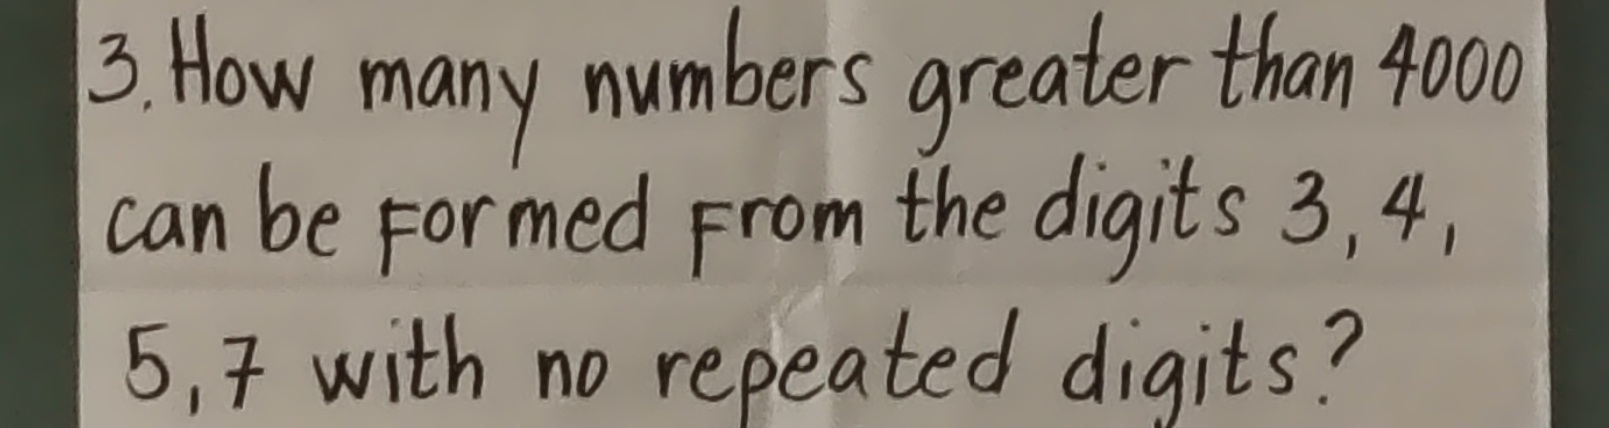 3. How many numbers greater than 4000
can be formed from the digits 3, 4,
5, 7 with no repeated digits?